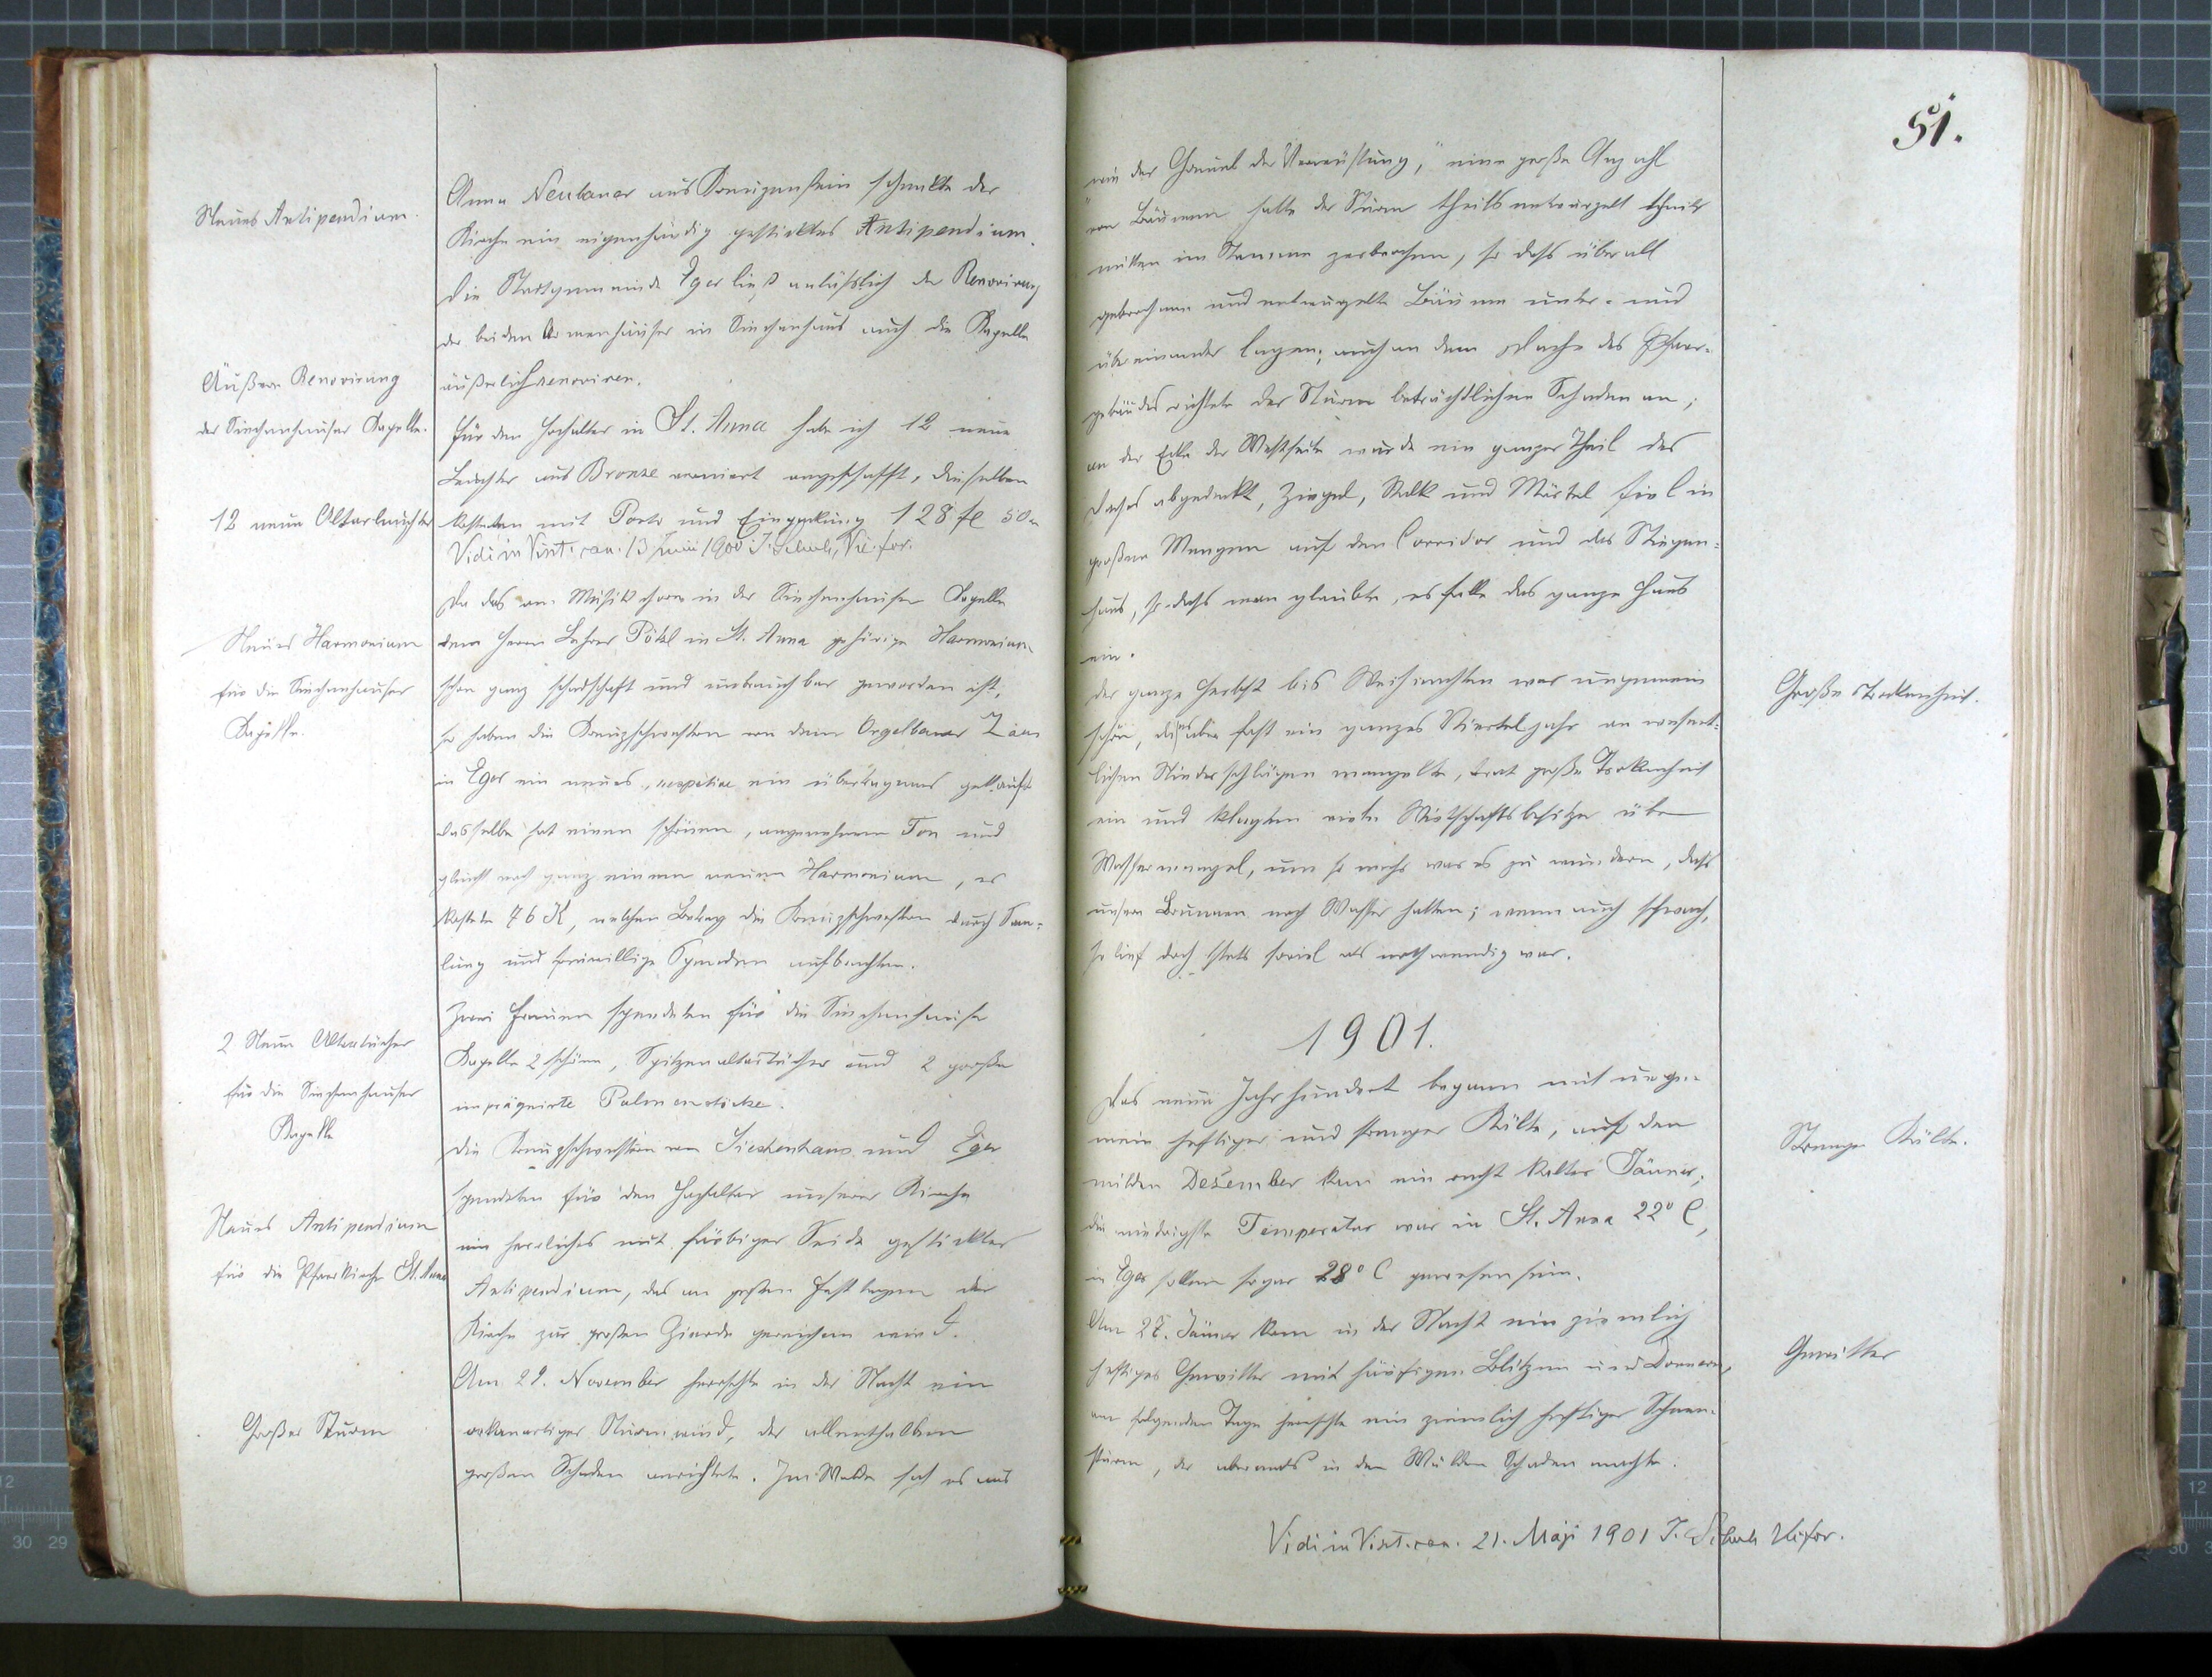 Neues Antipendium.
Anna Neubauer aus Konigenstein schenkte der
Kirche ein eigenhändig gesticktes Antipendium.
Die Stadtgemeinde Eger ließ anläßlich der Renovirung
der beiden Armenhäuser in Siechenhaus auch die Kapelle
äußerlich renoviren.
Äußere Renovirung
der Siechenhauser Kapelle.
Für den Hochaltar in St. Anna habe ich 12 neue
Leuchter aus Bronze verniert angeschafft, dieselben
12 neue Altarleuchter
kosteten mit Porto und Einpackung 128 fl 50
Vidi in Visit. can. 13 Juni 1900 J. Vic. for.
Da das am Musikchore in der Siechenhauser Kapelle
Neues Harmonium
für die Siechenhauser
Kapelle.
dem Herrn Lehrer Pötzl in St. Anna gehörige Harmonium
schon ganz schadhaft und unbrauchbar geworden ist,
so haben die Kreuzschwestern von dem Orgelbauer
in Eger ein neues, respetive ein übertragenes gekauft
dasselbe hat einen schönen, angenehmen Ton und
gleicht noch ganz einem neuen Harmonium, es
kostete 76 K, welchen Betrag die Kreuzschwestern durch Sam-
lung und freiwillige Spenden aufbrachten.
Zwei Frauen spendeten für die Siechenhauser
2 Neue Altartücher
für die Siechenhauser
Kapelle
Kapelle 2 schöne, Spitzenaltartücher und 2 große
imprägnirte Palmenstöcke.
Die Kreuzschwestern von Siechenhaus und Eger
spendeten für den Hochaltar unserer Kirche
Neues Antipendium
für die Pfarrkirche St. Anna
ein herrliches mit färbiger Seide gesticktes
Antipendium, das an großen Festtagen der
Kirche zur großen Zierde gereichen wird.
Am 29. November herrschte in der Nacht ein
Großer Sturm
orkanartiger Sturmwind, der allenthalben
großen Schaden anrichtete. Im Walde sah es aus
51.
wie der „Greuel der Verwüstung," eine große Anzahl
von Bäumen hatte der Sturm theils entwurzelt theils
mitten im Stamme zerbrochen, so daß überall
gebrochene und entwurzelte Bäume unter- und
übereinander lagen; auch an dem Dache des Pfarr-
gebäudes richtete der Sturm beträchtlichen Schaden an;
an der Ecke der Westseite wurde ein ganzer Theil des
Daches abgedeckt, Ziegel, Kalk und Mörtel fiel in
großen Mengen auf den Corridor und das Stiegen-
haus, so daß man glaubte, es falle das ganze Haus
ein.
Der ganze Herbst bis Weihnachten war ungemein
Große Trockenheit.
schön, da es aber fast ein ganzes Vierteljahr an wesent-
lichen Niederschlägen mangelte, trat große Trokenheit
ein und klagten viele Wirtschaftsbesitzer über
Wassermangel, um so mehr war es zu wundern, daß
unsere Brunnen noch Wasser hatten; wenn auch schwach,
so lief doch stets soviel als nothwendig war.
1901.
Das neue Jahrhundert begann mit unge-
mein heftiger und strenger Kälte, auf den
Strenge Kälte.
milden Dezember kam ein recht kalter Jänner,
die niedrigste Temperatur war in St. Anna 22° C,
in Eger sollen sogar 28° C gewesen sein.
Am 27. Jänner kam in der Nacht ein ziemlich
heftiges Gewitter mit häufigen Blitzen und Donnern,
Gewitter
am folgenden Tage herrschte ein ziemlich heftiger Schnee-
sturm, der abermals in den Wäldern Schaden machte.
Vidi in Visit. can. 21. Maji 1901 J. Vic. for.